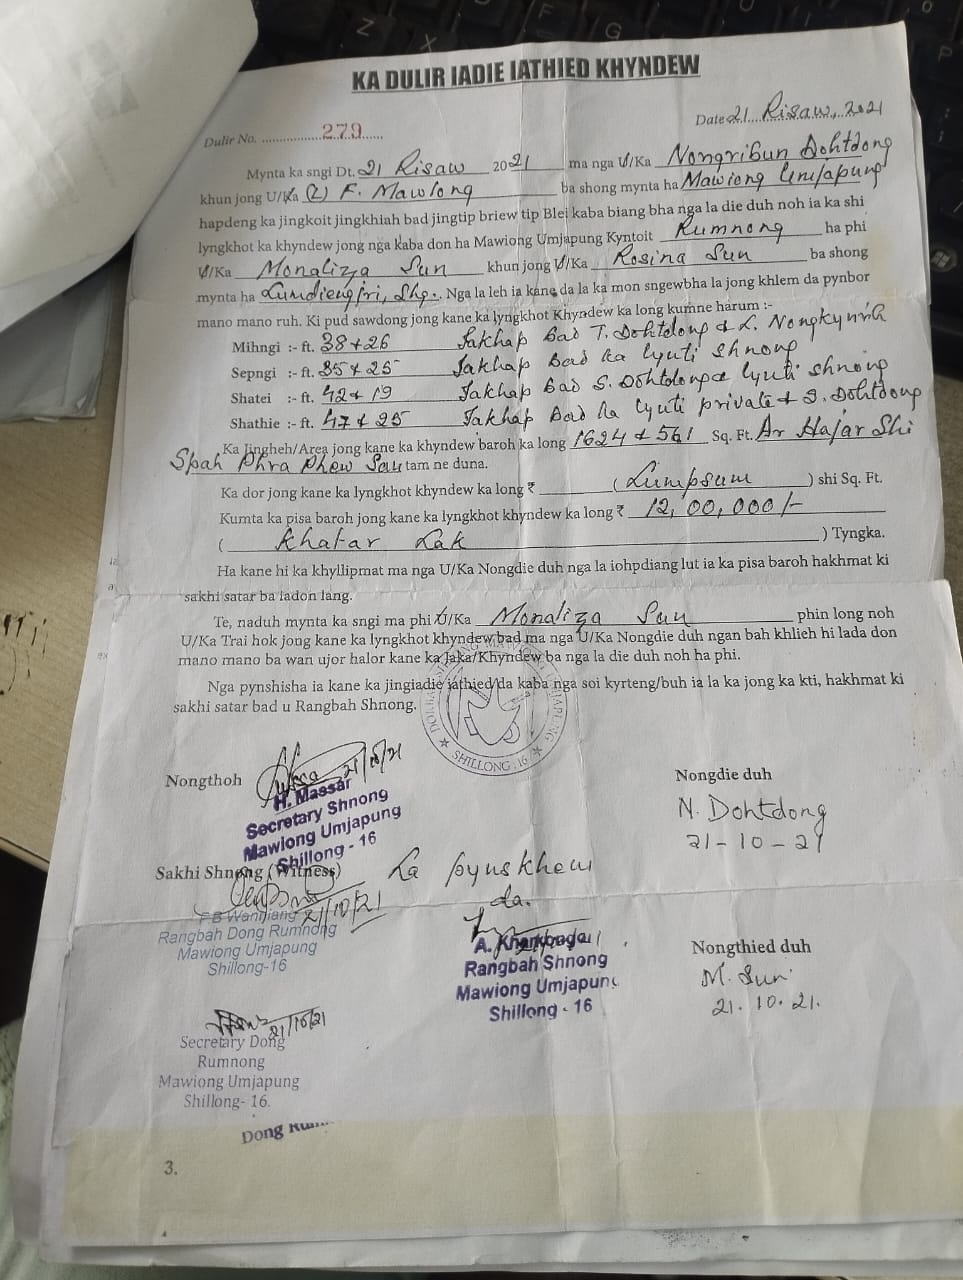 KA DULIR IADIE IATHIED KHYNDEW
Dulir No. ..................279......
Date 21....Risaw,..2021
Mynta ka sngi Dt. 21 Risaw 2021 ma nga U/Ka Nongribun Dohtdong
khun jong U/Ka (L) F. Mawlong ba shong mynta ha Mawiong Umjapung
hapdeng ka jingkoit jingkhiah bad jingtip briew tip Blei kaba biang bha nga la die duh noh ia ka shi
lyngkhot ka khyndew jong nga kaba don ha Mawiong Umjapung Kyntoit Rumnong ha phi
U/Ka Monaliza Sun khun jong U/Ka Rosina Sun ba shong
mynta ha Lumdiengjri, Shg.. Nga la leh ia kane da la ka mon sngewbha la jong khlem da pynbor
mano mano ruh. Ki pud sawdong jong kane ka lyngkhot Khyndew ka long kumne harum :-
Mihngi :- ft. 38+26 Jakhap bad T. Dohtdong & L. Nongkynrih
Sepngi :- ft. 35+25 Jakhap bad ka lynti shnong
Shatei :- ft. 42+19 Jakhap bad S. Dohtdong & lynti shnong
Shathie :- ft. 47+25 Jakhap bad ka lynti private & S. Dohtdong
Ka Jingheh/Area jong kane ka khyndew baroh ka long 1624+561 Sq. Ft. Ar Hajar Shi
Spah Phra Phew San tam ne duna.
Ka dor jong kane ka lyngkhot khyndew ka long ₹ (Lumpsum) shi Sq. Ft.
Kumta ka pisa baroh jong kane ka lyngkhot khyndew ka long ₹ 12,00,000/-
( Khatar Lak ) Tyngka.
Ha kane hi ka khyllipmat ma nga U/Ka Nongdie duh nga la iohpdiang lut ia ka pisa baroh hakhmat ki
sakhi satar ba iadon lang.
Te, naduh mynta ka sngi ma phi U/Ka Monaliza Sun phin long noh
U/Ka Trai hok jong kane ka lyngkhot khyndew bad ma nga U/Ka Nongdie duh ngan bah khlieh hi lada don
mano mano ba wan ujor halor kane ka Jaka/Khyndew ba nga la die duh noh ha phi.
Nga pynshisha ia kane ka jingiadie iathied da kaba nga soi kyrteng/buh ia la ka jong ka kti, hakhmat ki
sakhi satar bad u Rangbah Shnong.
SHILLONG-16
Nongthoh
21/10/21
H. Massar
Secretary Shnong
Mawiong Umjapung
Shillong - 16
Nongdie duh
N. Dohtdong
21-10-21
Sakhi Shnong (Witness)
Ka pynskhem
da.
21/10/21
F B Wanniang
Rangbah Dong Rumnong
Mawiong Umjapung
Shillong-16
A. Kharbudai
Rangbah Shnong
Mawiong Umjapung
Shillong - 16
Nongthied duh
M. Sun
21.10.21.
21/10/21
Secretary Dong
Rumnong
Mawiong Umjapung
Shillong- 16.
Dong
3.